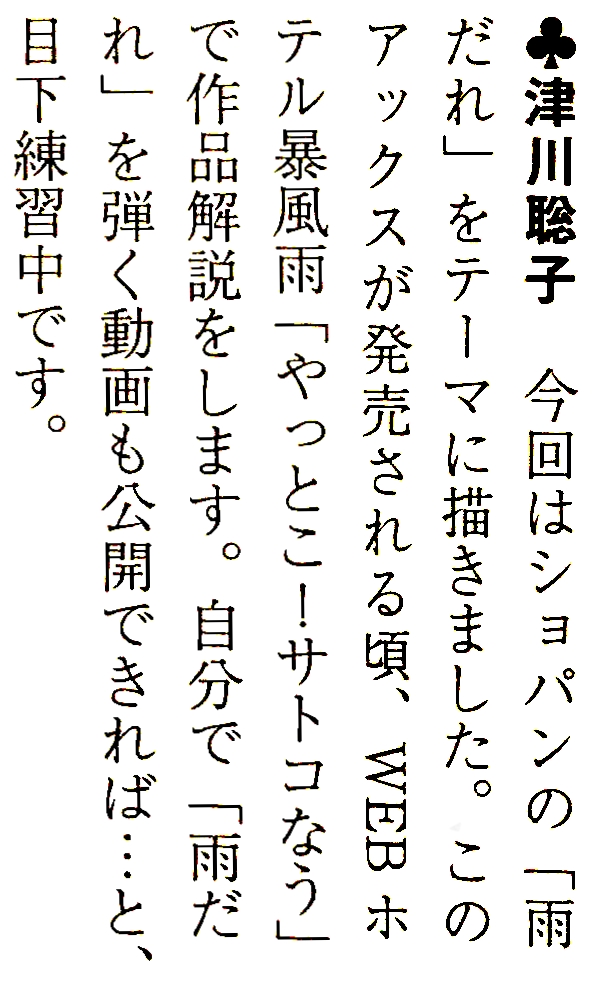 ♣津川聡子　今回はショパンの「雨
だれ」をテーマに描きました。この
アックスが発売される頃、WEBホ
テル暴風雨「やっとこ！サトコなう」
で作品解説をします。自分で「雨だ
れ」を弾く動画も公開できれば…と、
目下練習中です。